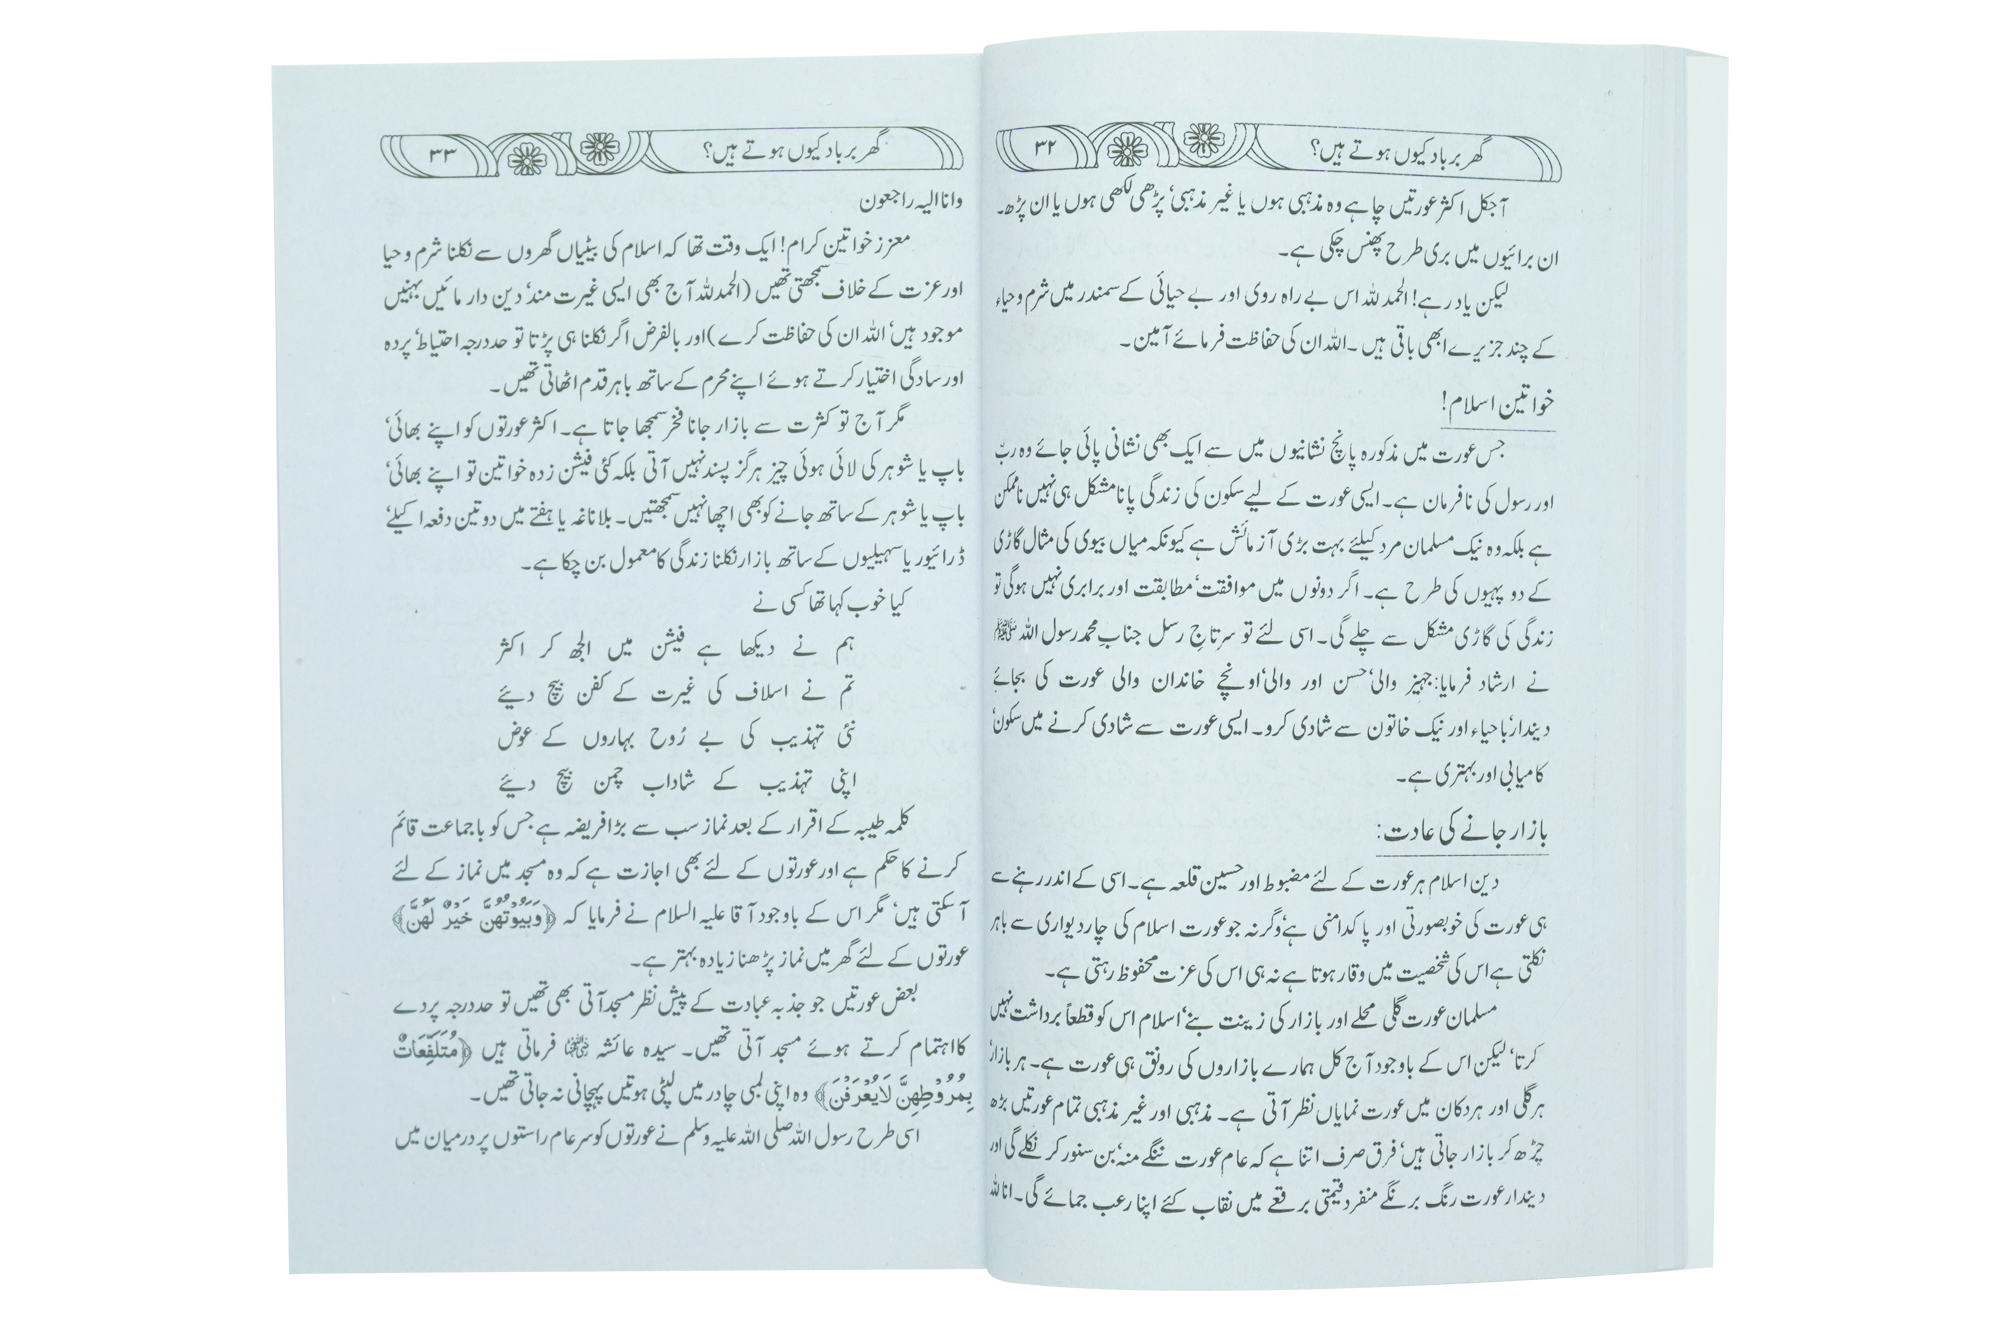 گھر برباد کیوں ہوتے ہیں؟ ۳۲
آجکل اکثر عورتیں چاہے وہ مذہبی ہوں یا غیر مذہبی‘ پڑھی لکھی ہوں یا ان پڑھ۔
ان برائیوں میں بری طرح پھنس چکی ہے۔
لیکن یاد رہے! الحمد للہ اس بے راہ روی اور بے حیائی کے سمندر میں شرم و حیاء
کے چند جزیرے ابھی باقی ہیں۔ اللہ ان کی حفاظت فرمائے آمین۔
خواتین اسلام!
جس عورت میں مذکورہ پانچ نشانیوں میں سے ایک بھی نشانی پائی جائے وہ ربّ
اور رسول کی نافرمان ہے۔ ایسی عورت کے لیے سکون کی زندگی پانا مشکل ہی نہیں ناممکن
ہے بلکہ وہ نیک مسلمان مرد کیلئے بہت بڑی آزمائش ہے کیونکہ میاں بیوی کی مثال گاڑی
کے دو پہیوں کی طرح ہے۔ اگر دونوں میں موافقت‘ مطابقت اور برابری نہیں ہوگی تو
زندگی کی گاڑی مشکل سے چلے گی۔ اسی لئے تو سرتاجِ رسل جنابِ محمد رسول اللہ ﷺ
نے ارشاد فرمایا: جہیز والی‘ حسن اور والی‘ اونچے خاندان والی عورت کی بجائے
دیندار‘ باحیاء اور نیک خاتون سے شادی کرو۔ ایسی عورت سے شادی کرنے میں سکون‘
کامیابی اور بہتری ہے۔
بازار جانے کی عادت:
دین اسلام ہر عورت کے لئے مضبوط اور حسین قلعہ ہے۔ اسی کے اندر رہنے سے
ہی عورت کی خوبصورتی اور پاکدامنی ہے‘ وگرنہ جو عورت اسلام کی چار دیواری سے باہر
نکلتی ہے اس کی شخصیت میں وقار ہوتا ہے نہ ہی اس کی عزت محفوظ رہتی ہے۔
مسلمان عورت گلی محلے اور بازار کی زینت بنے‘ اسلام اس کو قطعاً برداشت نہیں
کرتا‘ لیکن اس کے باوجود آج کل ہمارے بازاروں کی رونق ہی عورت ہے۔ ہر بازار‘
ہر گلی اور ہر دکان میں عورت نمایاں نظر آتی ہے۔ مذہبی اور غیر مذہبی تمام عورتیں بڑھ
چڑھ کر بازار جاتی ہیں‘ فرق صرف اتنا ہے کہ عام عورت ننگے منہ‘ بن سنور کر نکلے گی اور
دیندار عورت رنگ برنگے منفرد قیمتی برقعے میں نقاب کئے اپنا رعب جمائے گی۔ انا للہ
گھر برباد کیوں ہوتے ہیں؟ ۳۳
وانا الیہ راجعون
معزز خواتین کرام! ایک وقت تھا کہ اسلام کی بیٹیاں گھروں سے نکلنا شرم و حیا
اور عزت کے خلاف سمجھتی تھیں (الحمد للہ آج بھی ایسی غیرت مند‘ دین دار مائیں بہنیں
موجود ہیں‘ اللہ ان کی حفاظت کرے) اور بالفرض اگر نکلنا ہی پڑتا تو حد درجہ احتیاط‘ پردہ
اور سادگی اختیار کرتے ہوئے اپنے محرم کے ساتھ باہر قدم اٹھاتی تھیں۔
مگر آج تو کثرت سے بازار جانا فخر سمجھا جاتا ہے۔ اکثر عورتوں کو اپنے بھائی‘
باپ یا شوہر کی لائی ہوئی چیز ہرگز پسند نہیں آتی بلکہ کئی فیشن زدہ خواتین تو اپنے بھائی‘
باپ یا شوہر کے ساتھ جانے کو بھی اچھا نہیں سمجھتیں۔ بلاناغہ یا ہفتے میں دو تین دفعہ اکیلے‘
ڈرائیور یا سہیلیوں کے ساتھ بازار نکلنا زندگی کا معمول بن چکا ہے۔
کیا خوب کہا تھا کسی نے
ہم نے دیکھا ہے فیشن میں الجھ کر اکثر
تم نے اسلاف کی غیرت کے کفن بیچ دیئے
نئی تہذیب کی بے رُوح بہاروں کے عوض
اپنی تہذیب کے شاداب چمن بیچ دیئے
کلمہ طیبہ کے اقرار کے بعد نماز سب سے بڑا فریضہ ہے جس کو باجماعت قائم
کرنے کا حکم ہے اور عورتوں کے لئے بھی اجازت ہے کہ وہ مسجد میں نماز کے لئے
آسکتی ہیں‘ مگر اس کے باوجود آقا علیہ السلام نے فرمایا کہ ﴿وَبُيُوْتُهُنَّ خَيْرٌ لَّهُنَّ﴾
عورتوں کے لئے گھر میں نماز پڑھنا زیادہ بہتر ہے۔
بعض عورتیں جو جذبہ عبادت کے پیش نظر مسجد آتی بھی تھیں تو حد درجہ پردے
کا اہتمام کرتے ہوئے مسجد آتی تھیں۔ سیدہ عائشہ ؓ فرماتی ہیں ﴿مُتَلَفِّعَاتٌ
بِمُرُوْطِهِنَّ لَايُعْرَفْنَ﴾ وہ اپنی لمبی چادر میں لپٹی ہوتیں پہچانی نہ جاتی تھیں۔
اسی طرح رسول اللہ صلی اللہ علیہ وسلم نے عورتوں کو سر عام راستوں پر درمیان میں